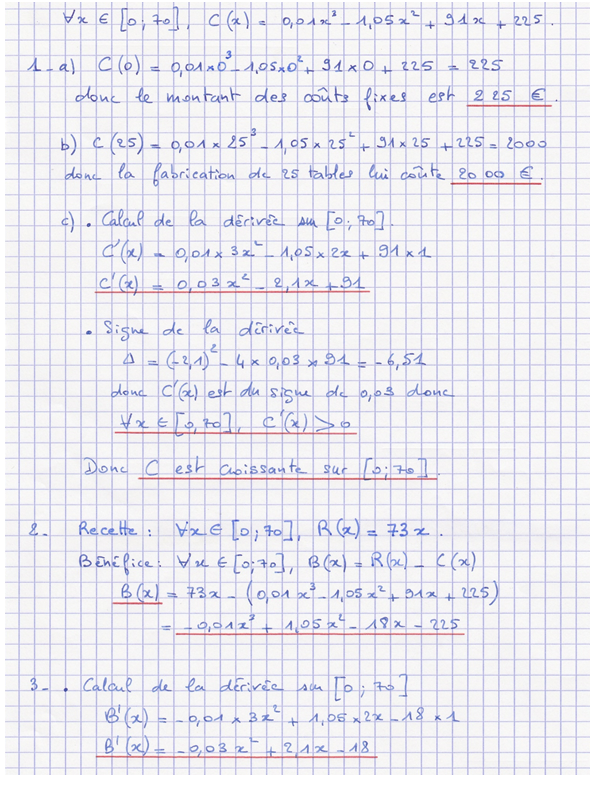 ∀x ∈ [0 ; 70], C(x) = 0,01x³ - 1,05x² + 91x + 225.
1- a) C(0) = 0,01×0³ - 1,05×0² + 91×0 + 225 = 225
donc le montant des coûts fixes est 225 €.
b) C(25) = 0,01 × 25³ - 1,05 × 25² + 91 × 25 + 225 = 2000
donc la fabrication de 25 tables lui coûte 2000 €.
c) • Calcul de la dérivée sur [0 ; 70].
C'(x) = 0,01 × 3x² - 1,05 × 2x + 91 × 1
C'(x) = 0,03x² - 2,1x + 91
• Signe de la dérivée
Δ = (-2,1)² - 4 × 0,03 × 91 = -6,51
donc C'(x) est du signe de 0,03 donc
∀x ∈ [0, 70], C'(x) > 0
Donc C est croissante sur [0 ; 70].
2- Recette : ∀x ∈ [0 ; 70], R(x) = 73x.
Bénéfice : ∀x ∈ [0; 70], B(x) = R(x) - C(x)
B(x) = 73x - (0,01x³ - 1,05x² + 91x + 225)
= -0,01x³ + 1,05x² - 18x - 225
3- • Calcul de la dérivée sur [0 ; 70]
B'(x) = -0,01 × 3x² + 1,05 × 2x - 18 × 1
B'(x) = -0,03x² + 2,1x - 18